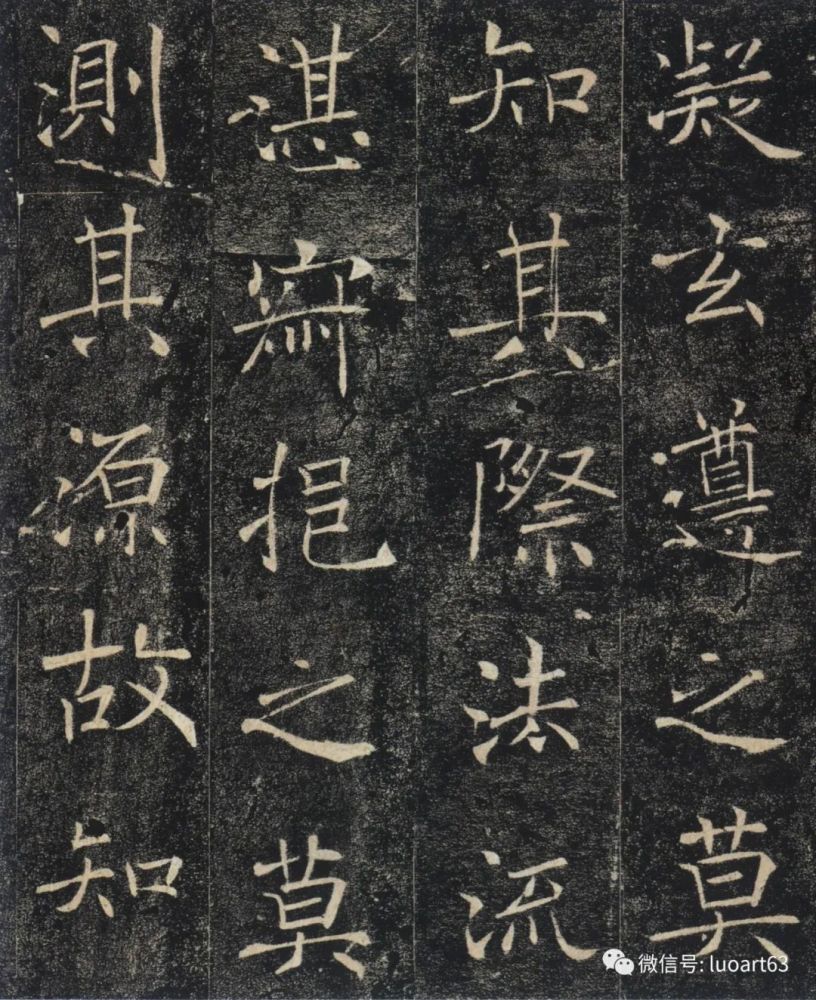 凝玄遵之莫
知其際法流
湛寂挹之莫
測其源故知
微信号: luoart63